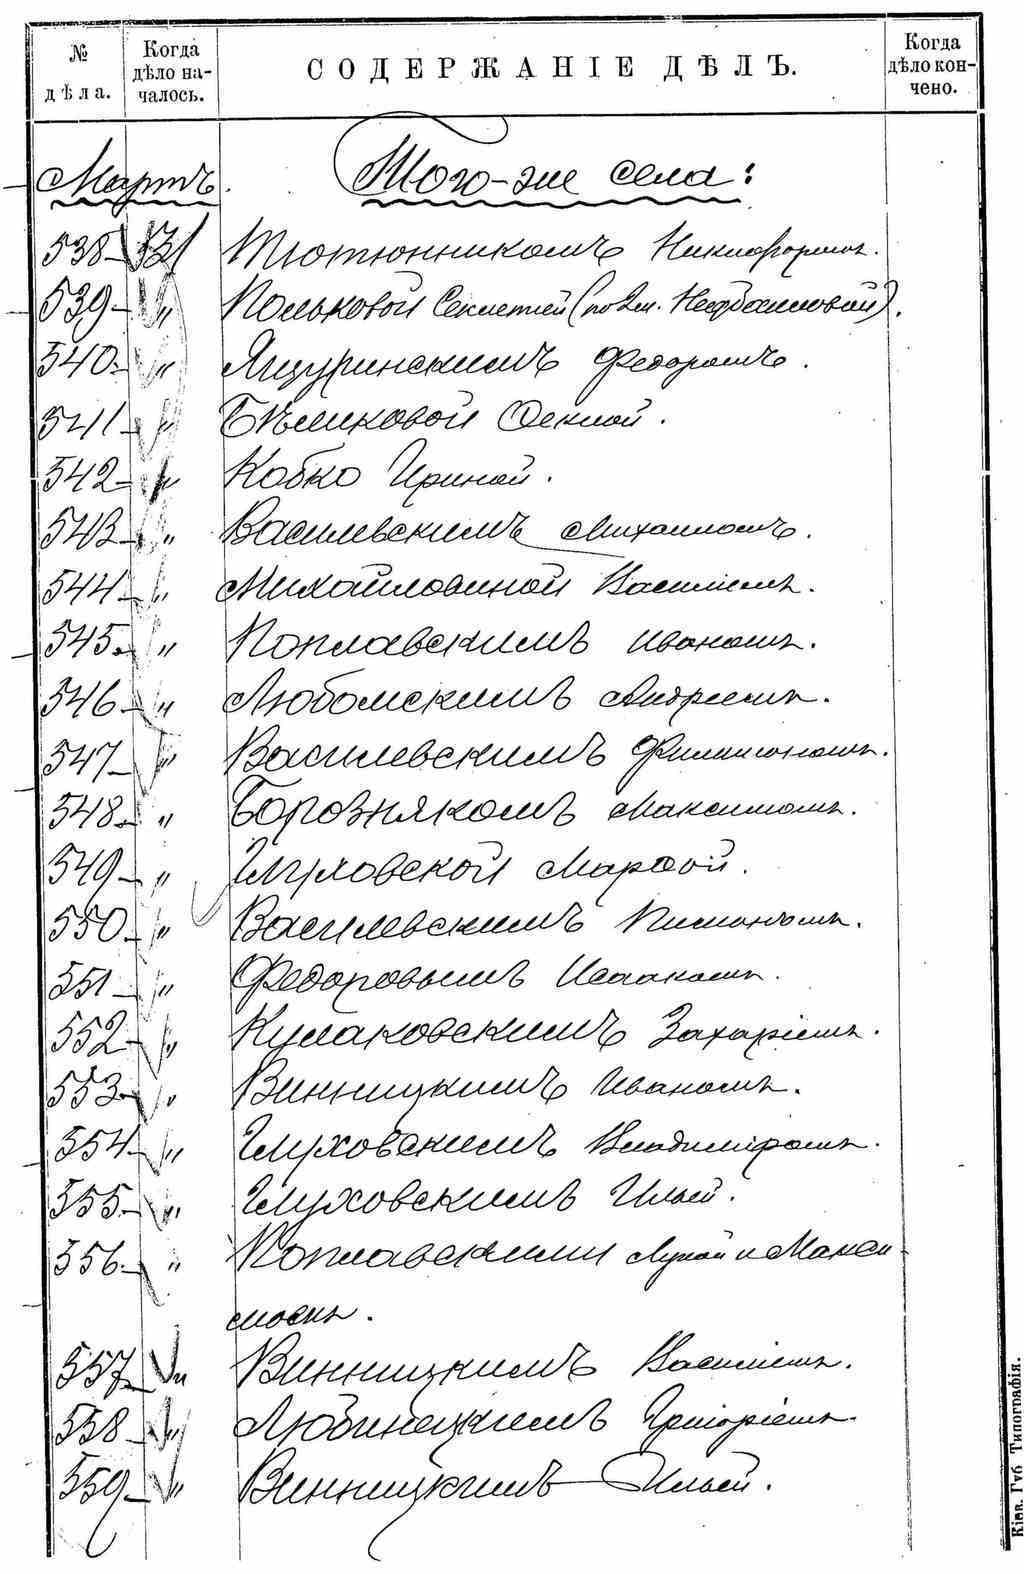 № дѣла.
Когда дѣло началось.
СОДЕРЖАНІЕ ДѢЛЪ.
Когда дѣло кончено.
Мартъ. Того-же села:
538 31 Тютюнникомъ Никифоромъ.
539 " Польковой Секлетией (по 2 м. Недбайловой).
540 " Ящуринскимъ Федоромъ.
541 " Бѣликовой Феклой.
542 " Кобко Ириной.
543 " Василевскимъ Михаиломъ.
544 " Михайловиной Василіемъ.
545 " Поплавскимъ Иваномъ.
546 " Любомскимъ Андреемъ.
547 " Василевскимъ Филимономъ.
548 " Борозnякомъ Максимомъ.
549 " Глуховской Марфой.
550 " Василевскимъ
551 " Федоровымъ Исаакомъ.
552 " Кулаковскимъ Захаріемъ.
553 " Винницкимъ Иваномъ.
554 " Глуховскимъ Владиміромъ.
555 " Глуховскимъ Ильей.
556 " Поплавскими Лукой и Макси-
момъ.
557 " Винницкимъ Василіемъ.
558 " Любинецкимъ Григоріемъ.
559 " Винницкимъ Ильей.
Кіев. Губ Типографія.